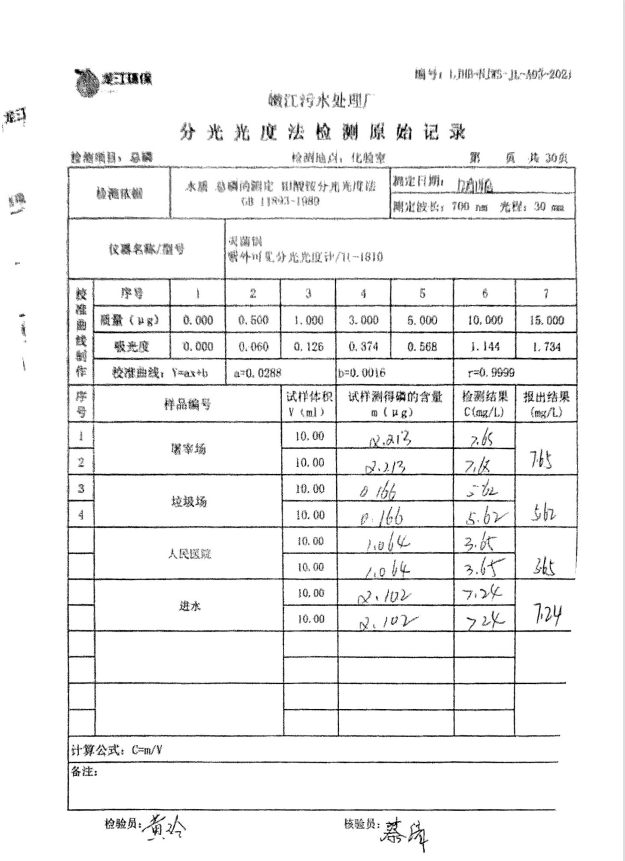 龙江环保
编号：LJHB-NJWS-JL-A03-2021
嫩江污水处理厂
龙江
分光光度法检测原始记录
检测项目：总磷 检测地点：化验室 第 页 共 30页
检测依据 水质 总磷的测定 钼酸铵分光光度法 GB 11893-1989
测定日期：
测定波长：700 nm 光程：30 mm
仪器名称/型号 灭菌锅
紫外可见分光光度计/TU-1810
校准曲线制作
序号 1 2 3 4 5 6 7
质量（μg） 0.000 0.500 1.000 3.000 5.000 10.000 15.000
吸光度 0.000 0.060 0.126 0.374 0.568 1.144 1.734
校准曲线：Y=ax+b a=0.0288 b=0.0016 r=0.9999
序号 样品编号 试样体积 V（ml） 试样测得磷的含量 m（μg） 检测结果 C(mg/L) 报出结果 (mg/L)
1 屠宰场 10.00 2.213 7.65 7.65
2 10.00 2.213 7.65
3 垃圾场 10.00 0.166 5.62 5.62
4 10.00 0.166 5.62
人民医院 10.00 1.064 3.65 3.65
10.00 1.064 3.65
进水 10.00 2.102 7.24 7.24
10.00 2.102 7.24
计算公式：C=m/V
备注：
检验员：黄玲 核验员：蔡